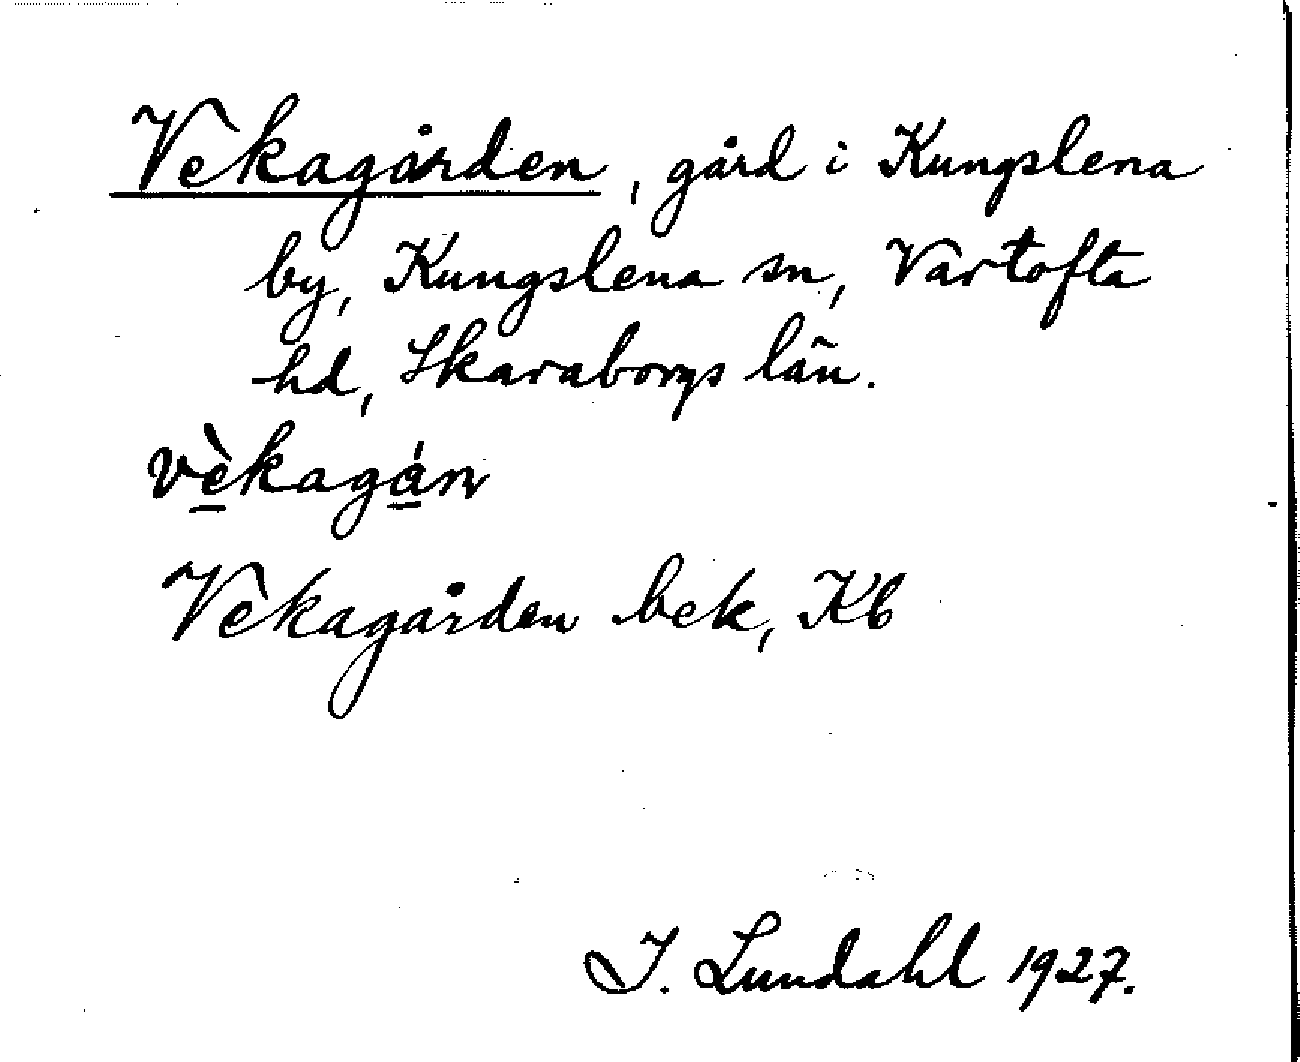 Vekagården, gård i Kungslena
by, Kungslena sn, Vartofta
hd, Skaraborgs län.
vèkagán
Vekagården bek, Kb
I. Lundahl 1927.